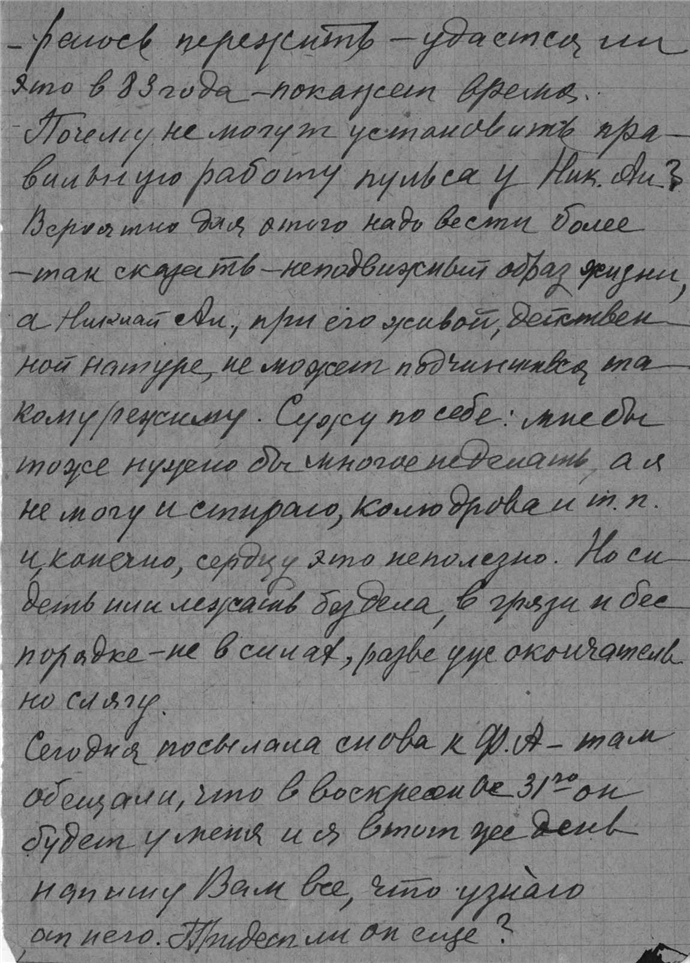 -раюсь пережить – удастся ли
это в 83 года – покажет время.
Почему не могут установить пра-
вильную работу пульса у Ник. Ал.?
Вероятно для этого надо вести более
– так сказать – неподвижный образ жизни,
а Николай Ал., при его живой, действен-
ной натуре, не может подчиниться та-
кому режиму. Сужу по себе: мне бы
тоже нужно бы многое не делать, а я
не могу и стираю, колю дрова и т.п.
и, конечно, сердцу это неполезно. Но си-
деть или лежать без дела, в грязи и бес
порядке – не в силах, разве уже окончатель
но слягу.
Сегодня посылала снова к Ф.А – там
обещали, что в воскресенье 31го он
будет у меня и я в тот же день
напишу Вам все, что узнаю
от него. Придет ли он еще?